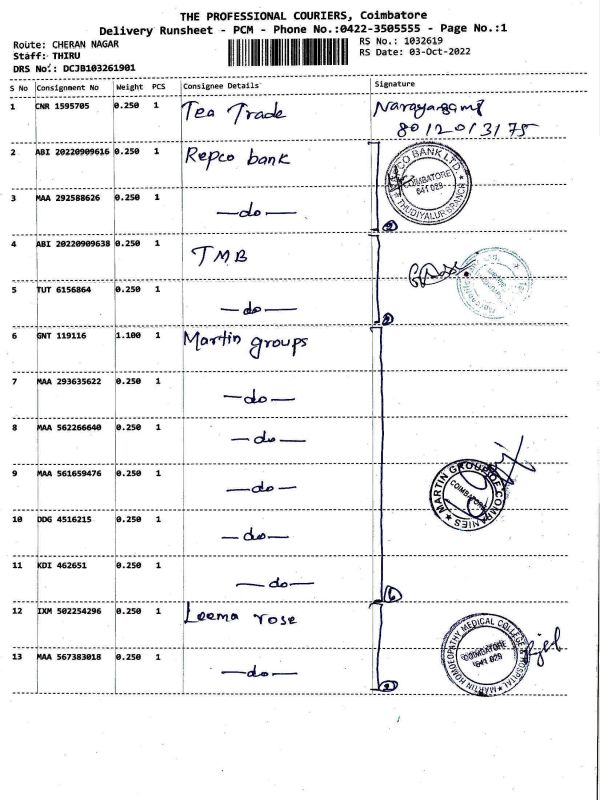 THE PROFESSIONAL COURIERS, Coimbatore
Delivery Runsheet - PCM - Phone No.:0422-3505555 - Page No.:1
Route: CHERAN NAGAR
RS No.: 1032619
Staff: THIRU
RS Date: 03-Oct-2022
DRS No.: DCJB103261901
S No Consignment No Weight PCS Consignee Details Signature
1 CNR 1595705 0.250 1 Tea Trade
8012013175
2 ABI 20220909616 0.250 1 Repco bank
REPCO BANK LTD.
COIMBATORE
641 029
THUDIYALUR BRANCH
3 MAA 292588626 0.250 1 —do—
2
4 ABI 20220909638 0.250 1 TMB
5 TUT 6156864 0.250 1 —do—
2
6 GNT 119116 1.100 1 Martin groups
7 MAA 293635622 0.250 1 —do—
8 MAA 562266640 0.250 1 —do—
9 MAA 561659476 0.250 1 —do—
MARTIN GROUP OF COMPANIES
COIMBATORE
10 DDG 4516215 0.250 1 —do—
11 KDI 462651 0.250 1 —do—
6
12 IXM 502254296 0.250 1 Leema rose
MARTIN HOMOEOPATHY MEDICAL COLLEGE & HOSPITAL
COIMBATORE
641 029
13 MAA 567383018 0.250 1 —do—
2